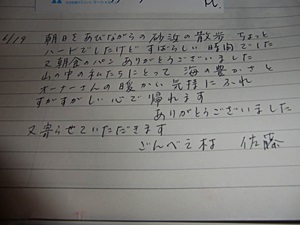 6/19 朝日をあびながらの砂浜の散歩 ちょっと
ハードでしたけど すばらしい時間でした
又朝食のパン ありがとうございました
山の中の私たちにとって 海の豊かさと
オーナーさんの暖かい気持にふれ
すがすがしい心で帰れます
ありがとうございました
又寄らせていただきます
ごんべえ村 佐藤